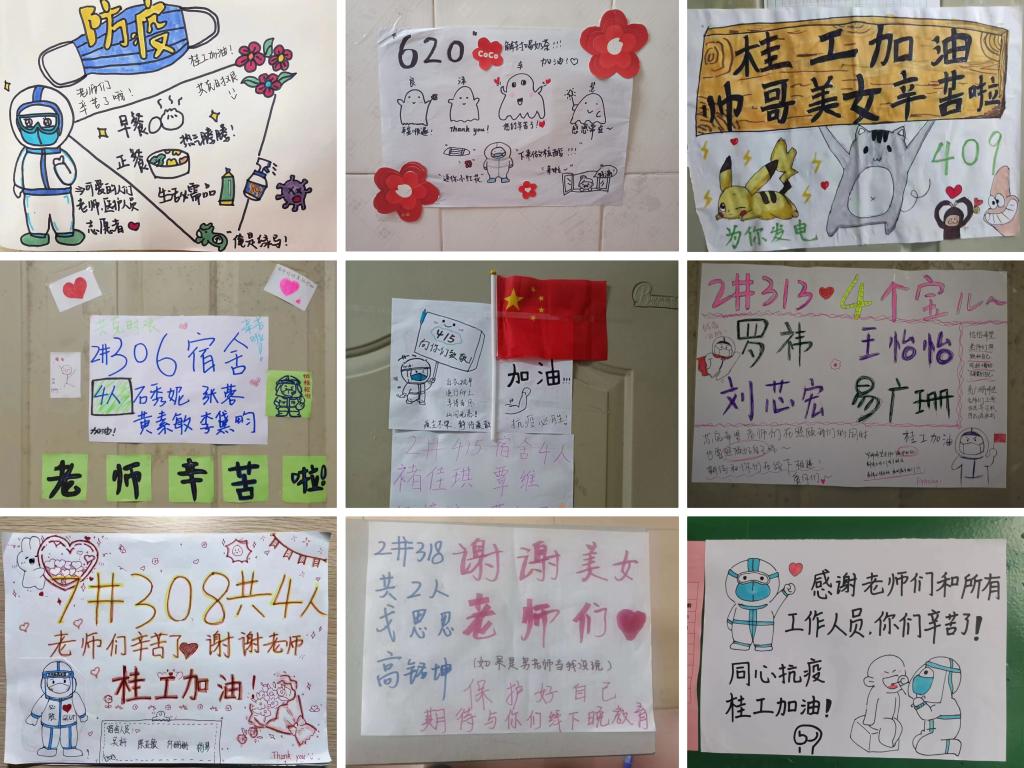 防疫
桂工加油!
老师们
辛苦了喔!
共克时艰
早餐
热腾腾!
正餐
生活必需品
⇒可爱的人们
老师、医护人员
志愿者
俺是绿马!
620
CoCo
解封喝奶茶!!!
加油!
Thank you!
您们辛苦了!
下来做核酸!!!
"送你小红花"
桂工加油
帅哥美女辛苦啦
409
为你发电
共克时艰
2#306宿舍
4人
石秀妮 张蓉
黄素敏 李黛昀
加油!
老师辛苦啦!
415
向你们致敬
加油!!!
抗疫必胜!
2#415宿舍4人
褚佳琪 覃维
2#313 4个宝儿~
罗祎 王怡怡
刘芯宏 易广珊
桂工加油
7#308共4人
老师们辛苦了 谢谢老师
桂工加油!
Thank you
2#318
共2人
戈思思
高铭坤
谢谢美女
老师们
(如果是男老师当我没说)
保护好自己
期待与你们线下晚教育
感谢老师们和所有
工作人员,你们辛苦了!
同心抗疫
桂工加油!